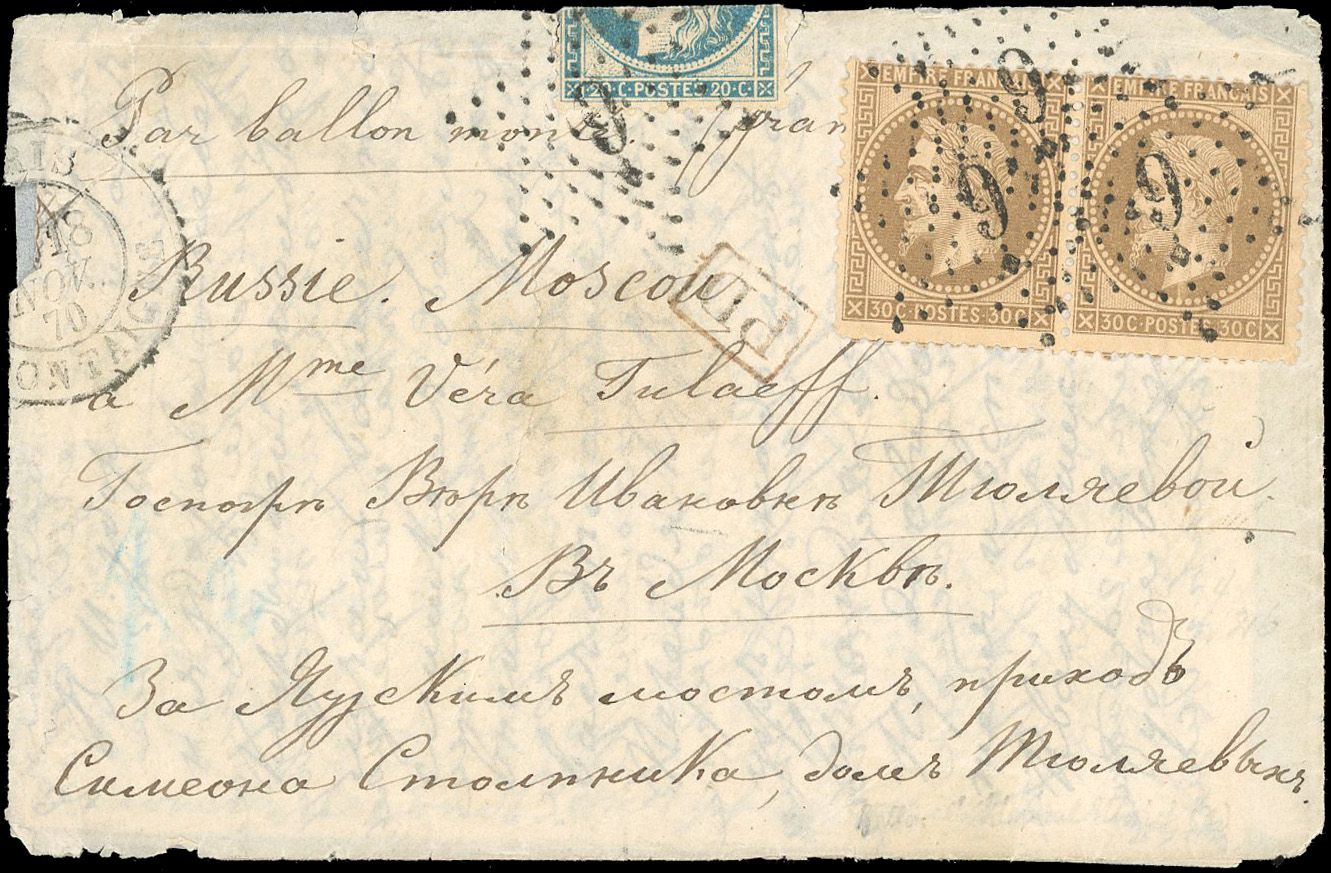 20 C · POSTES · 20 C
EMPIRE FRANÇAIS EMPIRE FRANÇAIS
30 C · POSTES · 30 C 30 C · POSTES · 30 C
9 9 9 9
Par ballon
18
NOV.
70
PD
Russie. Moscou
à Mme Véra Tulaeff.
Госпожѣ Вѣрѣ Ивановнѣ Тюляевой.
Въ Москвѣ.
За Яузскимъ мостомъ, приходъ
Симеона Столпника, домъ Тюляевыхъ.